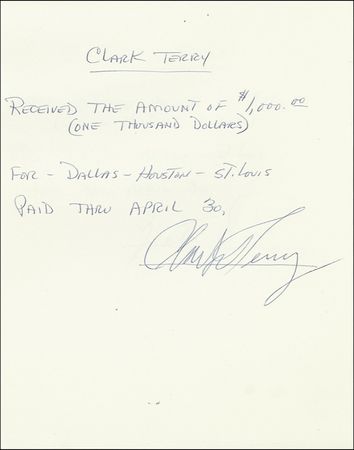 CLARK TERRY
RECEIVED THE AMOUNT OF $1,000.00
(ONE THOUSAND DOLLARS)
FOR - DALLAS - HOUSTON - ST. LOUIS
PAID THRU APRIL 30,
Clark Terry